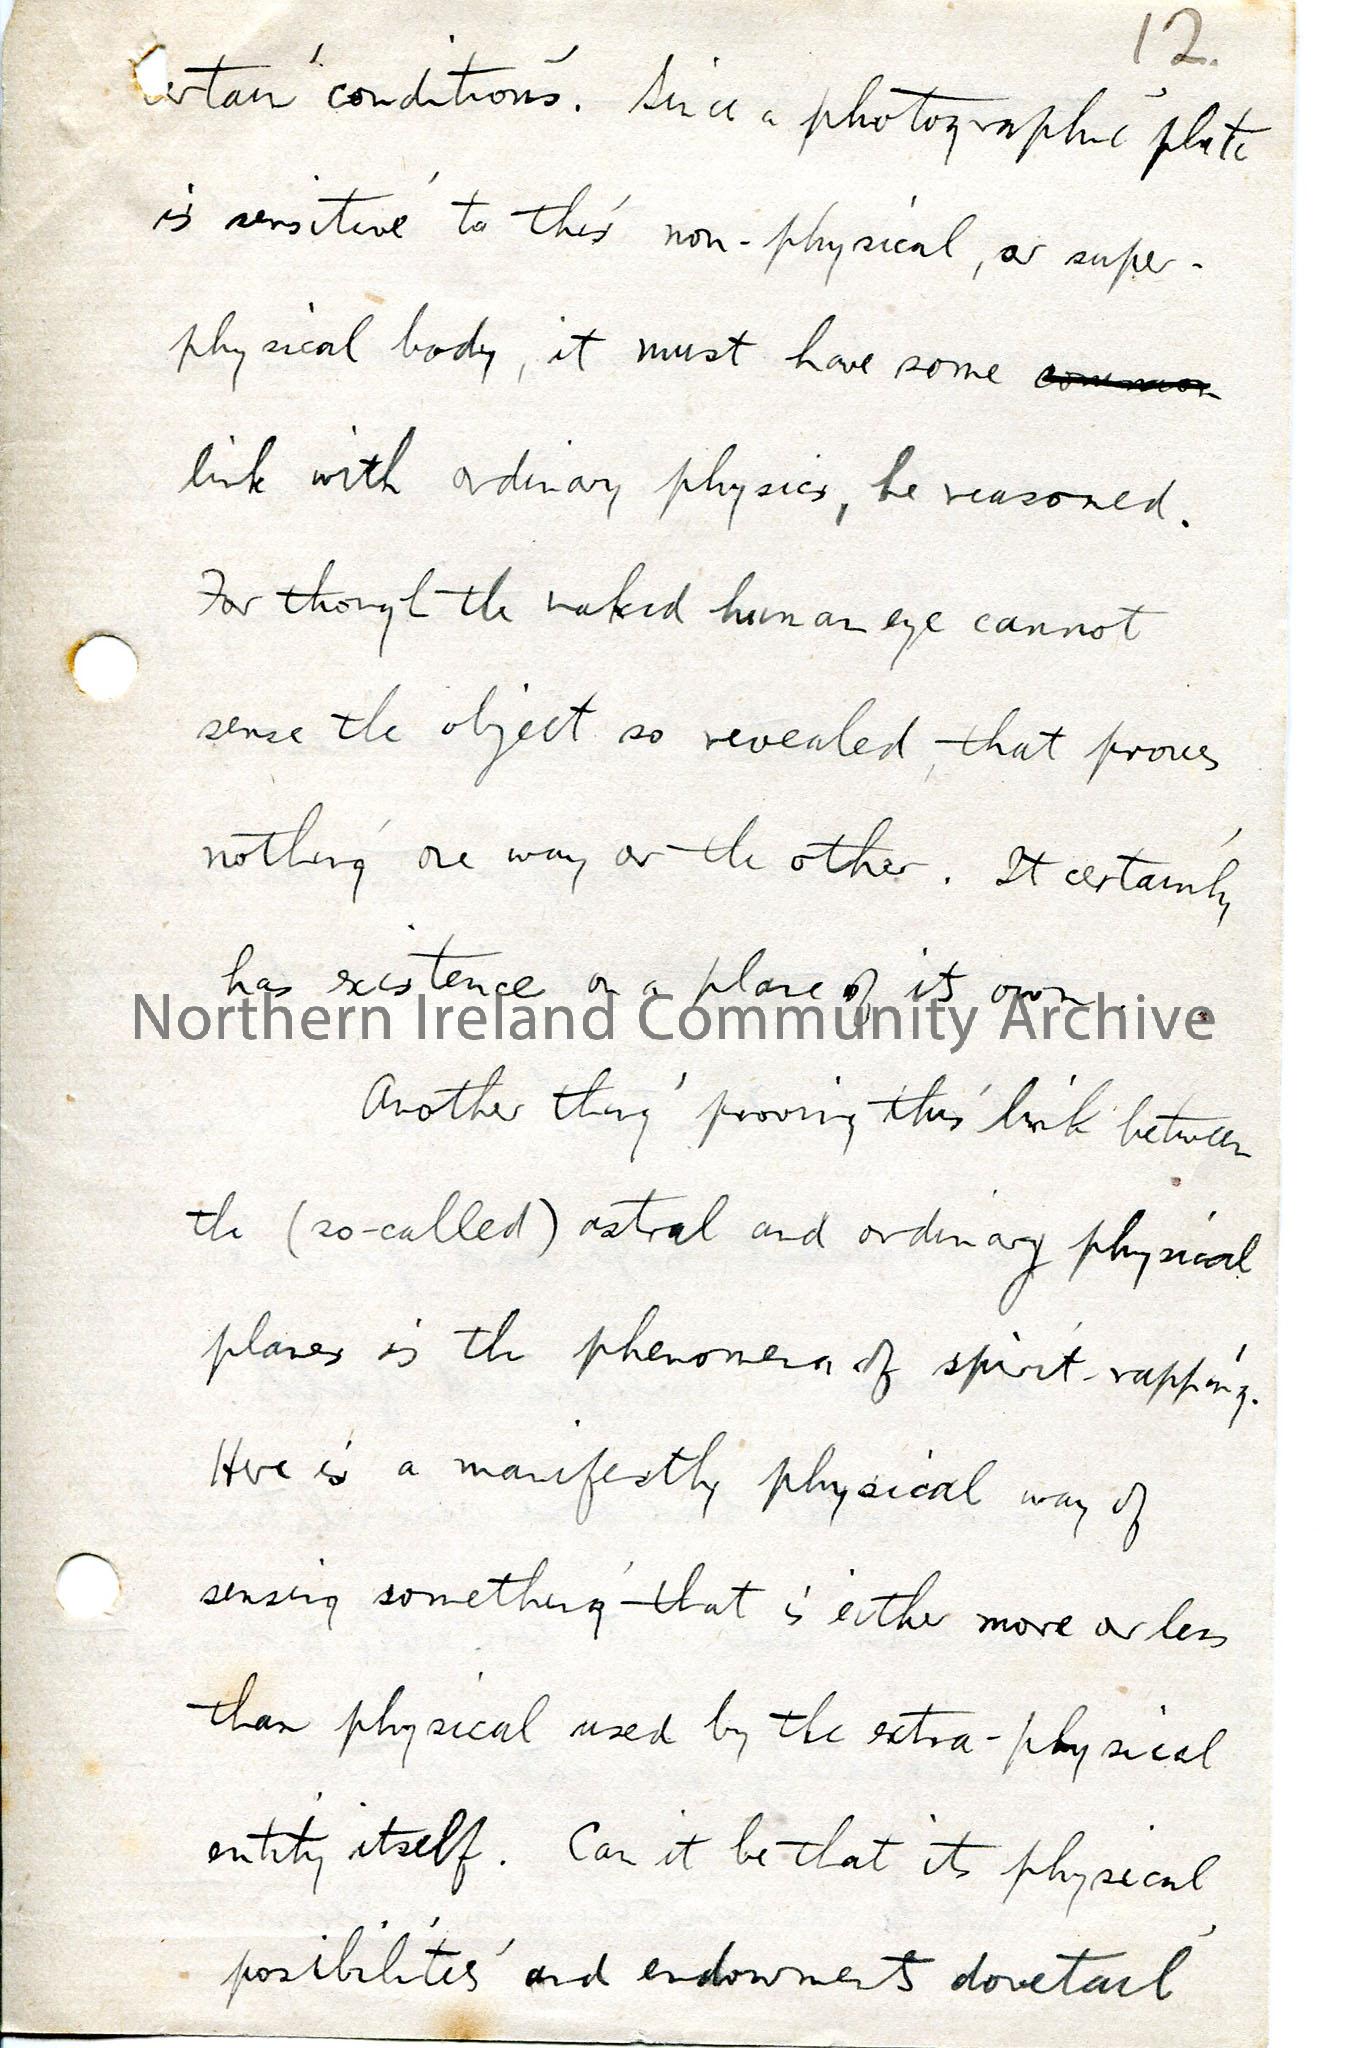 12.
certain conditions. Since a photographic plate
is sensitive to this non-physical, or super-
physical body, it must have some common
link with ordinary physics, he reasoned.
For though the naked human eye cannot
sense the object so revealed, that proves
nothing one way or the other. It certainly
has existence on a plane of its own.
Northern Ireland Community Archive
Another thing proving this link between
the (so-called) astral and ordinary physical
planes is the phenomena of spirit-rapping.
Here is a manifestly physical way of
sensing something that is either more or less
than physical used by the extra-physical
entity itself. Can it be that its physical
posibilities and endowments dovetail